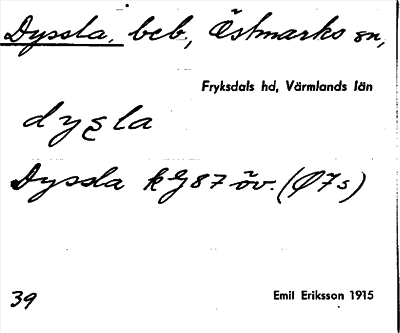 Dyssla, beb., Östmarks sn,
Fryksdals hd, Värmlands län
dysla
Dyssla kG87 öv. (Ø7s)
39
Emil Eriksson 1915